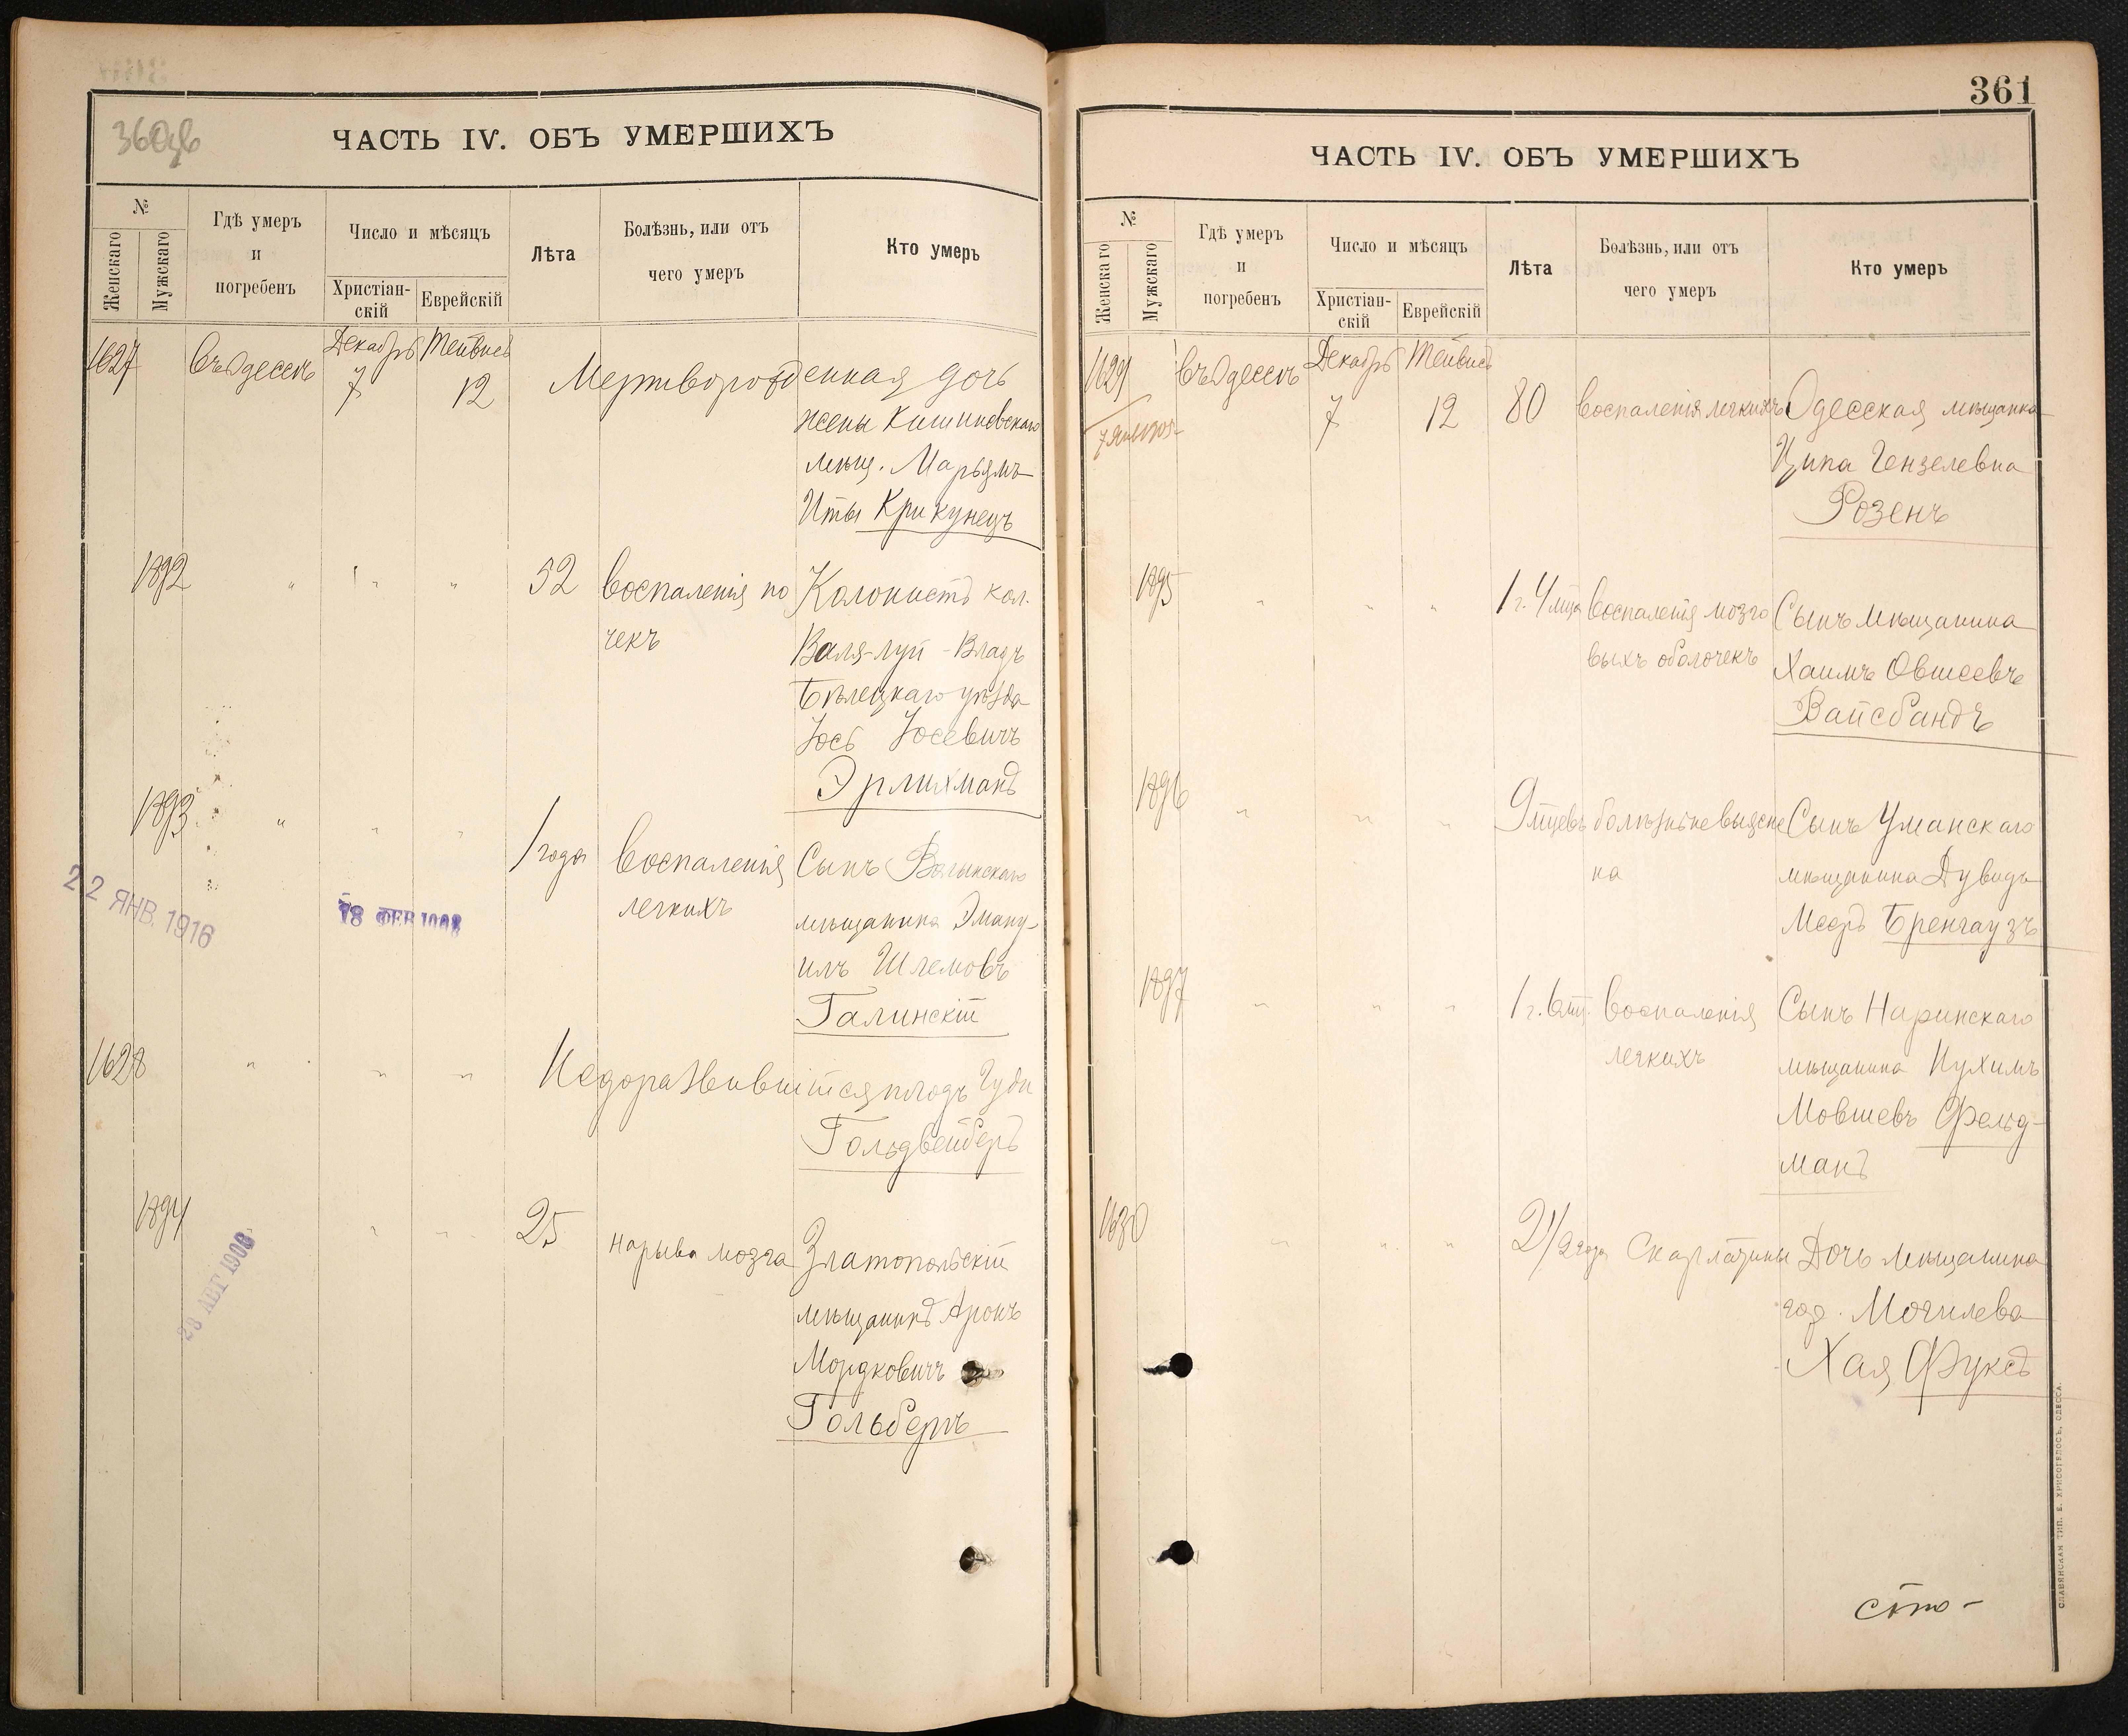 360об
ЧАСТЬ IV. ОБЪ УМЕРШИХЪ
№
Женскаго
Мужскаго
Гдѣ умеръ
и
погребенъ
Число и мѣсяцъ
Христіан-
скій
Еврейскій
Лѣта
Болѣзнь, или отъ
чего умеръ
Кто умеръ
1627 въ Одессѣ Декабрь 7 Тейвисъ 12 Мертворожденная дочь
жены Кишиневскаго
мѣщ. Марьямъ
Иты Крикунецъ
1892 " " " 52 воспаленія по Колонистъ кол.
чекъ Валя-луй-Владъ
Бѣлецкаго уѣзда
Іось Іосевичъ
Эрлихманъ
1893 " " " 1 года воспаленія Сынъ
легкихъ мѣщанина Эману-
илъ Шлемовъ
Галинскій
22 ЯНВ. 1916
18 ФЕВ 1908
1628 " " " Недоразвившійся плодъ Гуды
Гольдвейберъ
1894 " " 25 нарыва мозга Златопольскій
мѣщанинъ Аронъ
Мордковичъ
Гольберъ
28 АВГ 1908
361
ЧАСТЬ IV. ОБЪ УМЕРШИХЪ
№
Женскаго
Мужскаго
Гдѣ умеръ
и
погребенъ
Число и мѣсяцъ
Христіан-
скій
Еврейскій
Лѣта
Болѣзнь, или отъ
чего умеръ
Кто умеръ
1629 въ Одессѣ Декабрь 7 Тейвисъ 12 80 воспаленія легкихъ Одесская мѣщанка
Ципа Гензелевна
Розенъ
1895 " " " 1 г. 4 мца воспаленія мозго Сынъ мѣщанина
выхъ оболочекъ Хаимъ Овшеевъ
Вайсбандъ
1896 " " " 9 мцевъ болѣзнь не выясне Сынъ Уманскаго
на мѣщанина Дувидъ
Мееръ Бренгаузъ
1897 " " " 1 г. 6 мц. воспаленія Сынъ Наринскаго
легкихъ мѣщанина Нухимъ
Мовшевъ Фельд-
манъ
1630 " " " 2 1/2 года Скарлатины Дочь мѣщанина
гор. Могилева
Хая Фуксъ
СЛАВЯНСКАЯ ТИП. Е. ХРИСОГЕЛОСЪ, ОДЕССА.